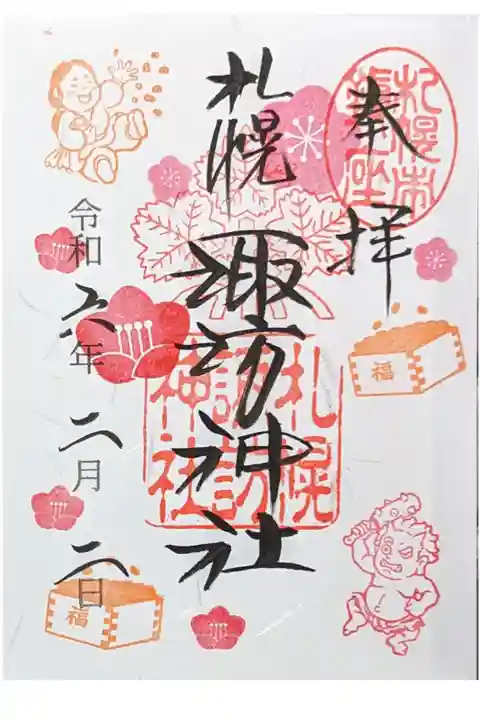 奉拝
札幌市
鎮座
札幌
諏訪神社
札幌
諏訪
神社
令和六年二月二日
福
福